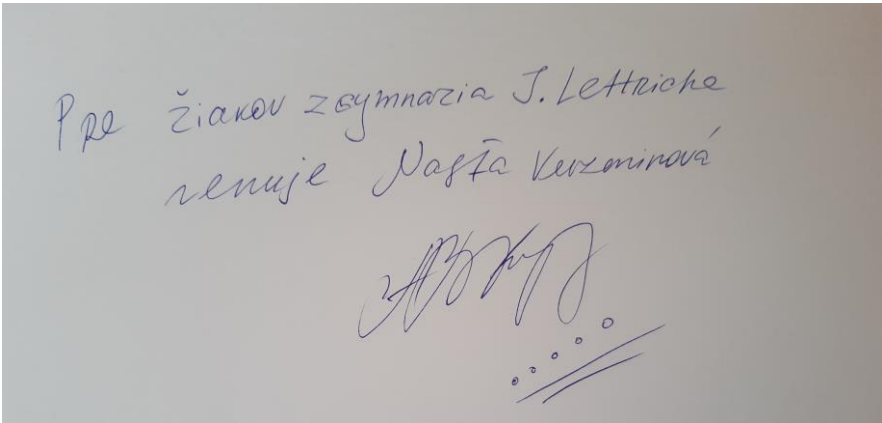 Pre žiakov z gymnazia J. Lettricha
venuje Nasťa Kuzminová